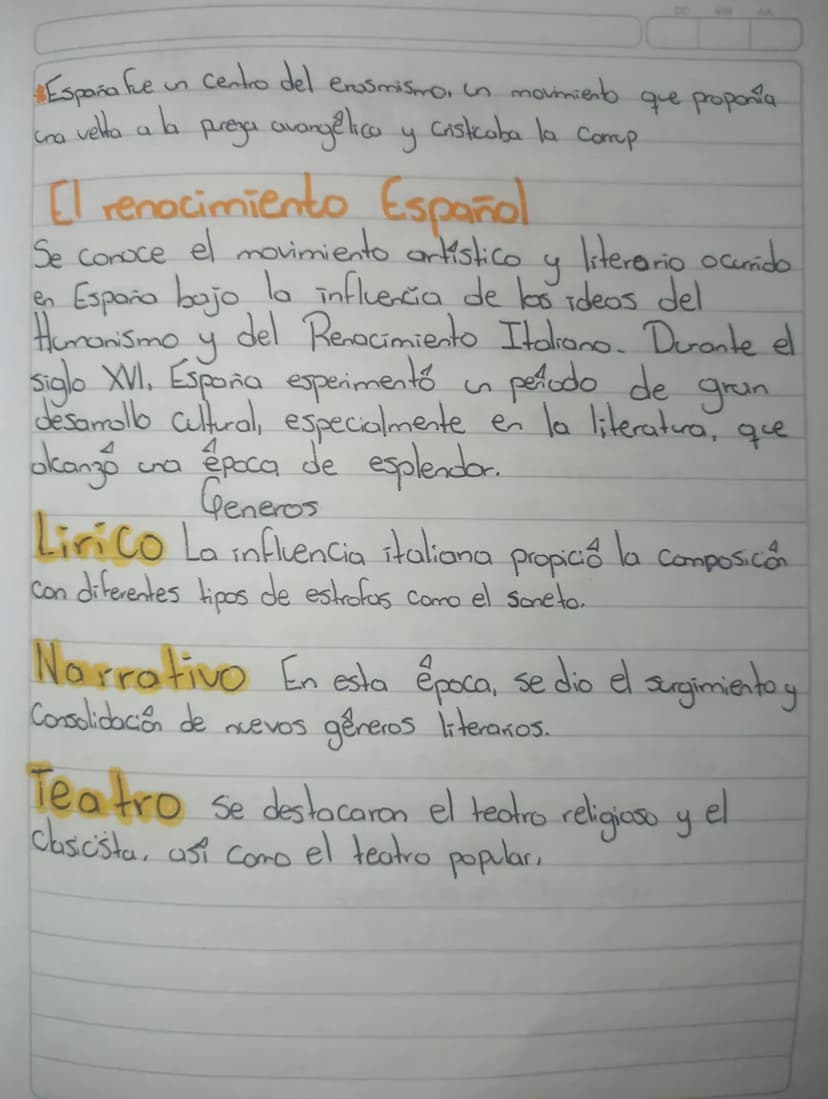 DD MM AA
*España fue un centro del erasmismo, un movimiento que proponía
una vuelta a la pureza avangélica y cristicaba la corrup
El renacimiento Español
Se conoce el movimiento artístico y literario ocurrido
en España bajo la influencia de las ideas del
Humanismo y del Renacimiento Italiano. Durante el
siglo XVI, España esperimentó un período de gran
desarrollo cultural, especialmente en la literatura, que
alcanzó una época de esplendor.
Generos
Lirico La influencia italiana propició la composición
con diferentes tipos de estrofas como el soneto.
Narrativo En esta época, se dio el surgimiento y
Consolidación de nuevos géneros literarios.
Teatro se destacaron el teatro religioso y el
clasicista, así como el teatro popular.